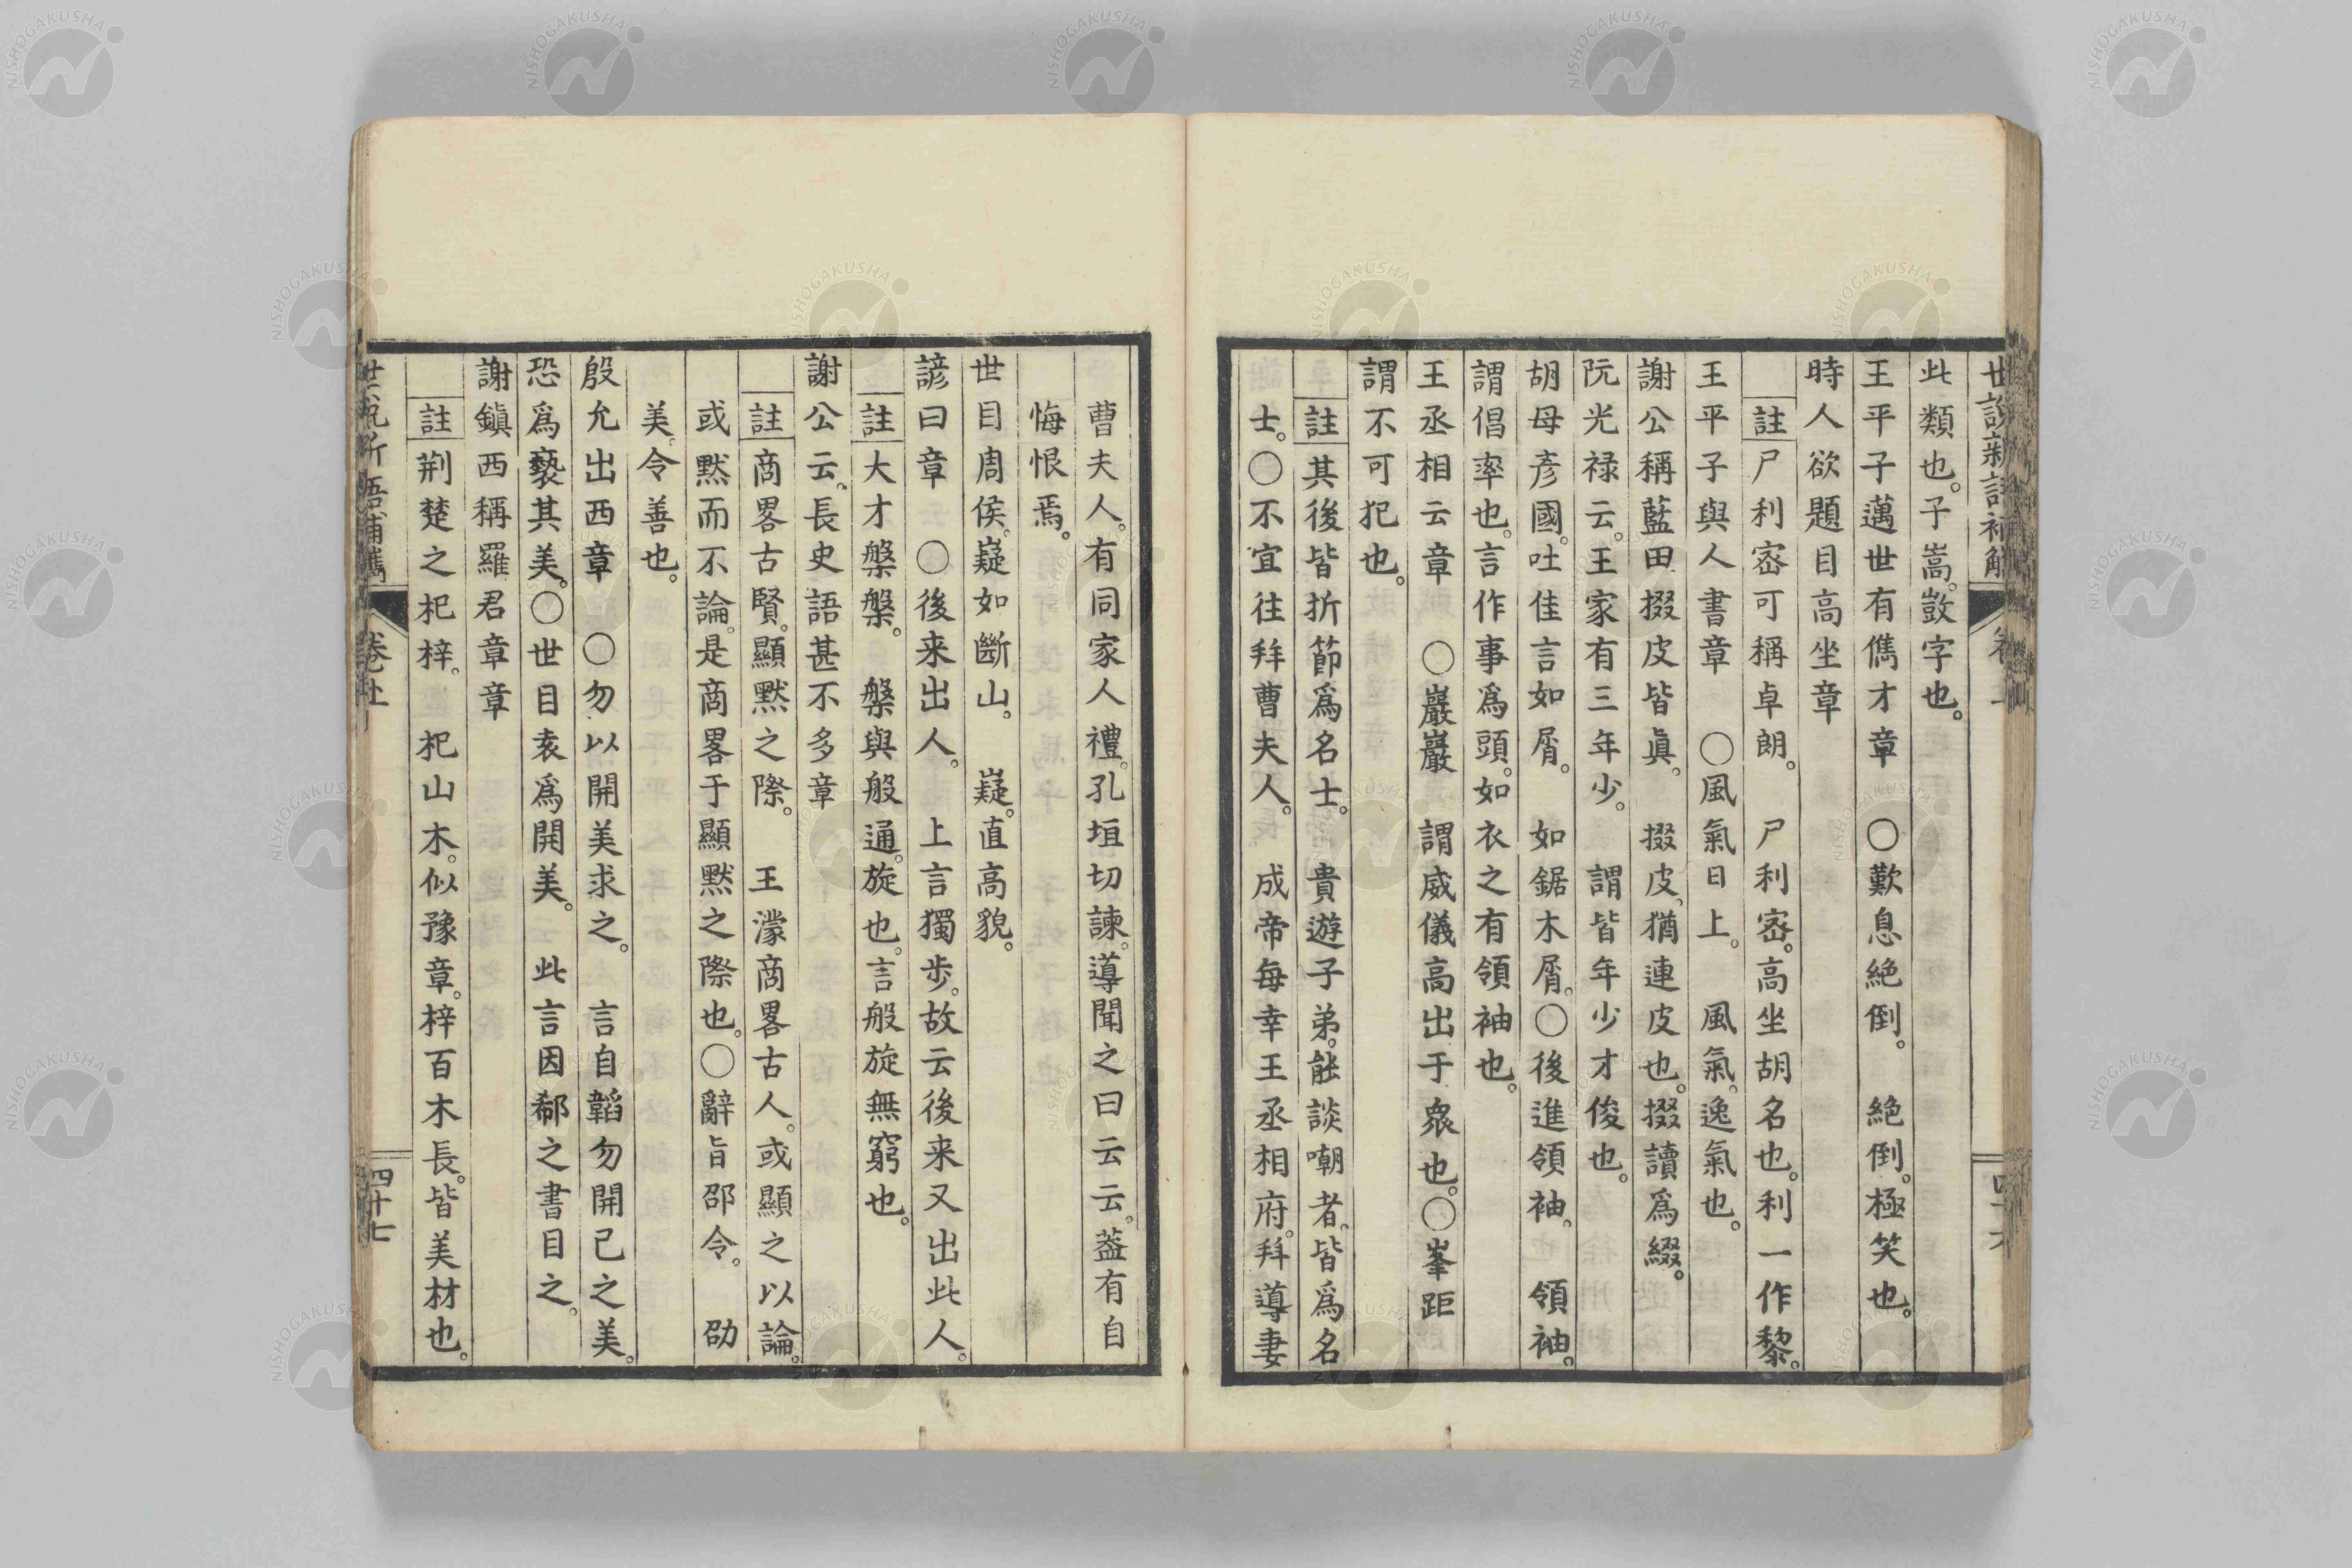 此類也。子嵩。敳字也。
王平子邁世有儁才章　〇歎息絶倒。　絶倒。極笑也。
時人欲題目高坐章
註尸利宻可稱卓朗。　尸利宻。高坐胡名也。利一作黎。
王平子與人書章　〇風氣日上。　風氣。逸氣也。
謝公稱藍田掇皮皆眞。　掇皮。猶連皮也。掇讀爲綴。
阮光禄云。王家有三年少。　謂皆年少才俊也。
胡母彦國。吐佳言如屑。　如鋸木屑。〇後進領袖。　領袖。
謂倡率也。言作事爲頭。如衣之有領袖也。
王丞相云章　〇巖巖　謂威儀高出于衆也。〇峯距
謂不可犯也。
註其後皆折節爲名士。　貴遊子弟。能談嘲者。皆爲名
士。〇不宜往拜曹夫人。　成帝每幸王丞相府。拜導妻
曹夫人。有同家人禮。孔垣切諫。導聞之曰云云。葢有自
悔恨焉。
世目周侯。嶷如斷山。　嶷。直高貌。
諺曰章　〇後来出人。　上言獨歩。故云後来又出此人。
註大才槃槃。　槃與般通。旋也。言般旋無窮也。
謝公云。長史語甚不多章
註商畧古賢。顯黙之際。　王濛商畧古人。或顯之以論。
或黙而不論。是商畧于顯黙之際也。〇辭旨邵令。　劭
美。令善也。
殷允出西章　〇勿以開美求之。　言自韜勿開己之美。
恐爲褻其美。〇世目袁爲開美。　此言因郗之書目之。
謝鎭西稱羅君章章
註荆楚之杞梓。　杞山木。似豫章。梓百木長。皆美材也。
四十七